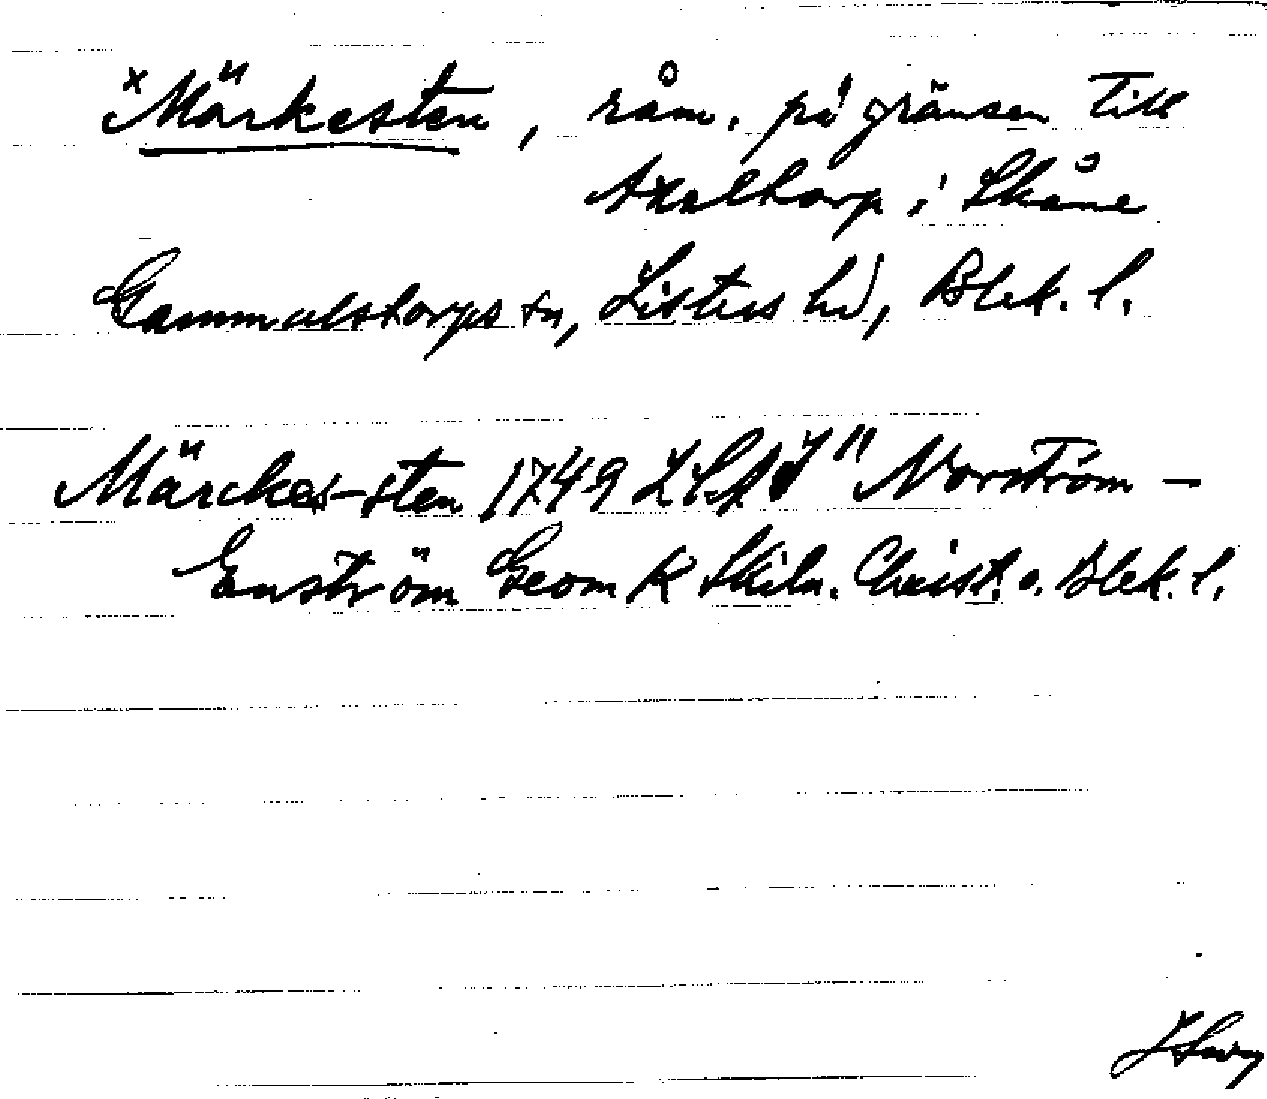 x Märkesten, råm. på gränsen till
Axeltorp i Skåne
Gammalstorps sn, Listers hd, Blek. l.
Märckes-sten 1749 LSA Norström –
Enström Geom K Skiln. Christ. o. Blek. l.